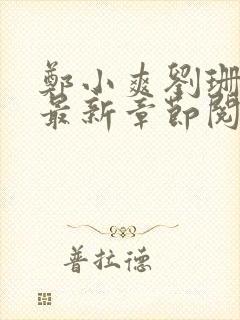 鄭小爽劉珊
最新章節閱
普拉德